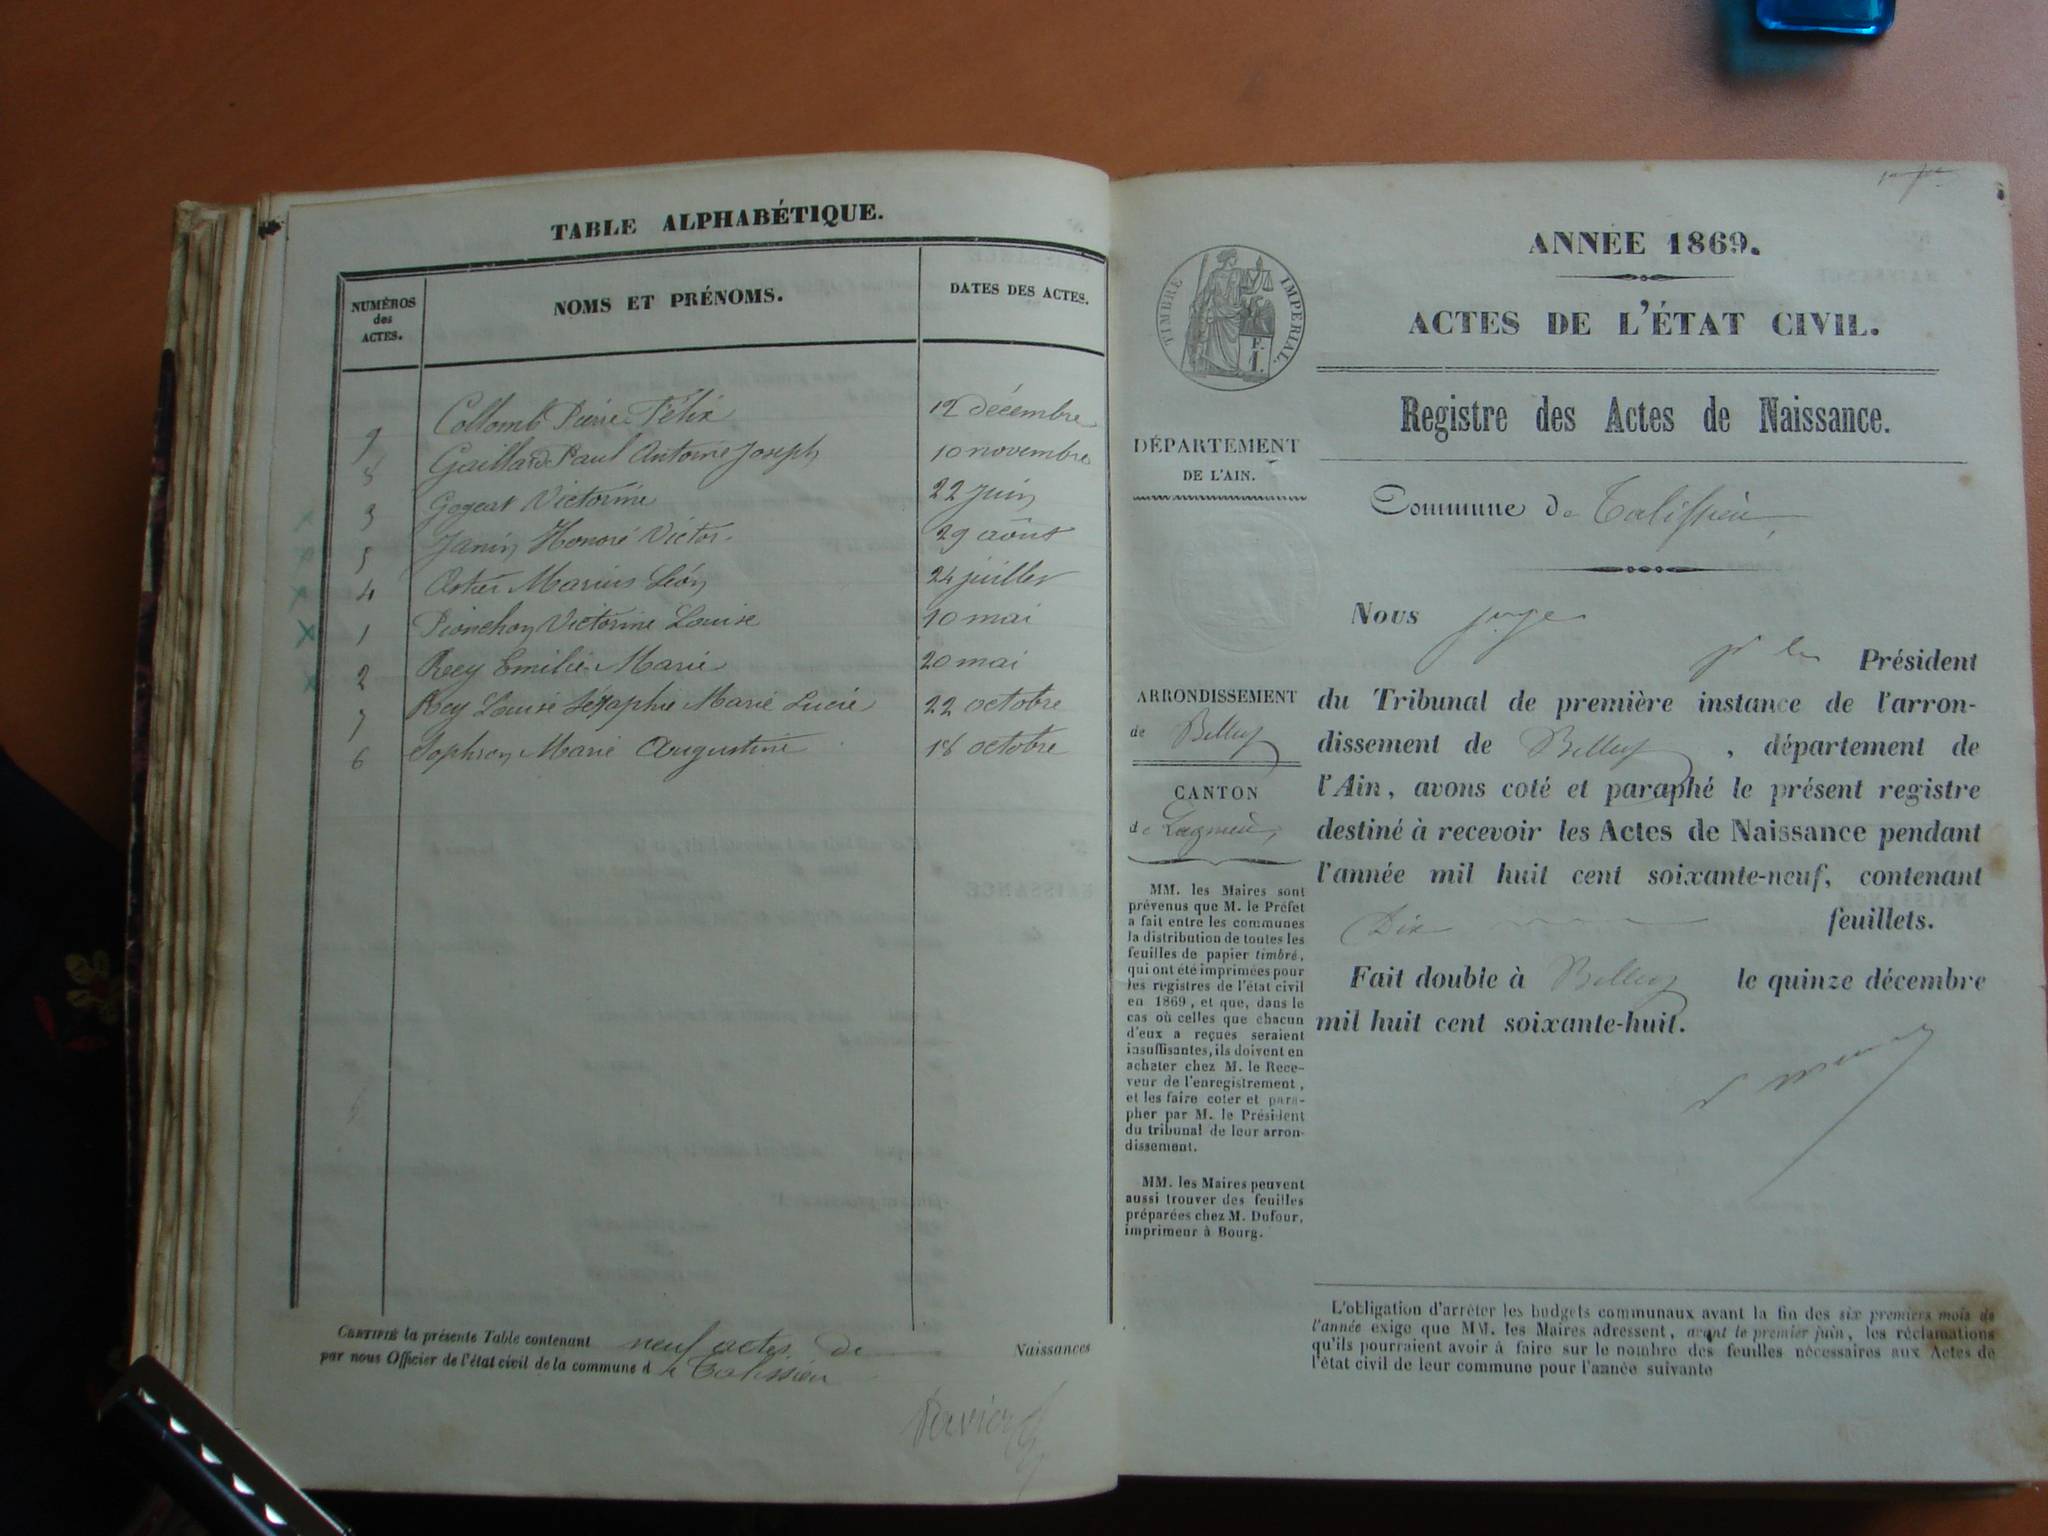 TABLE ALPHABÉTIQUE.
NUMÉROS
des
ACTES.
NOMS ET PRÉNOMS.
DATES DES ACTES.
9 Collomb Pierre Félix 12 décembre
8 Gaillard Paul Antoine Joseph 10 novembre
3 Gogeat Victorine 22 juin
5 Janin Honoré Victor 29 août
4 Marius Léon 24 juillet
1 Pionchon Victorine Louise 10 mai
2 Rey Emilie Marie 20 mai
7 Rey Louise Séraphie Marie Lucie 22 octobre
6 Sophron Marie Augustine 18 octobre
CERTIFIÉ la présente Table contenant neuf actes de Naissances
par nous Officier de l'état civil de la commune de Talissieu
ANNÉE 1869.
TIMBRE IMPÉRIAL.
F.
1.
ACTES DE L'ÉTAT CIVIL.
Registre des Actes de Naissance.
DÉPARTEMENT
DE L'AIN.
Commune de Talissieu
Nous juge
Président
du Tribunal de première instance de l'arron-
dissement de Belley, département de
l'Ain, avons coté et paraphé le présent registre
destiné à recevoir les Actes de Naissance pendant
l'année mil huit cent soixante-neuf, contenant
Dix feuillets.
Fait double à Belley le quinze décembre
mil huit cent soixante-huit.
ARRONDISSEMENT
de Belley
CANTON
de Lagnieu
MM. les Maires sont
prévenus que M. le Préfet
a fait entre les communes
la distribution de toutes les
feuilles de papier timbré,
qui ont été imprimées pour
les registres de l'état civil
en 1869, et que, dans le
cas où celles que chacun
d'eux a reçues seraient
insuffisantes, ils doivent en
acheter chez M. le Rece-
veur de l'enregistrement,
et les faire coter et para-
pher par M. le Président
du tribunal de leur arron-
dissement.
MM. les Maires peuvent
aussi trouver des feuilles
préparées chez M. Dufour,
imprimeur à Bourg.
L'obligation d'arrêter les budgets communaux avant la fin des six premiers mois de
l'année exige que MM. les Maires adressent, avant le premier juin, les réclamations
qu'ils pourraient avoir à faire sur le nombre des feuilles nécessaires aux Actes de
l'état civil de leur commune pour l'année suivante